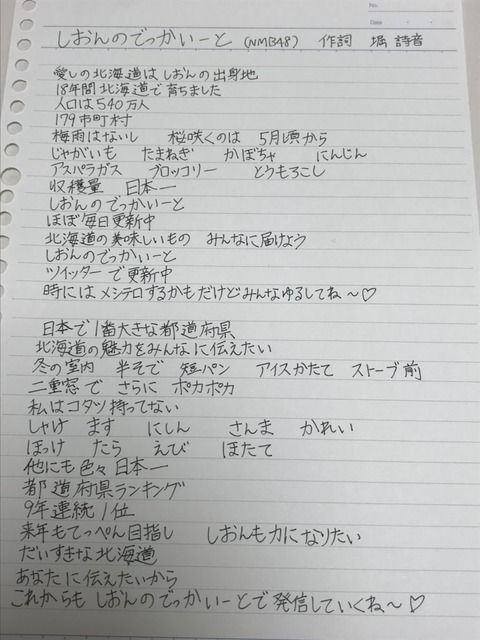 No.
Date
しおんのでっかいーと (NMB48) 作詞 堀 詩音
愛しの北海道は しおんの出身地
18年間北海道で育ちました
人口は540万人
179市町村
梅雨はないし 桜咲くのは 5月頃から
じゃがいも たまねぎ かぼちゃ にんじん
アスパラガス ブロッコリー とうもろこし
収穫量 日本一
しおんのでっかいーと
ほぼ毎日更新中
北海道の美味しいもの みんなに届けよう
しおんのでっかいーと
ツイッターで更新中
時にはメシテロするかもだけどみんなゆるしてね〜♡
日本で1番大きな都道府県
北海道の魅力をみんなに伝えたい
冬の室内 半そで 短パン アイスかたて ストーブ前
二重窓で さらに ポカポカ
私はコタツ持ってない
しゃけ ます にしん さんま かれい
ほっけ たら えび ほたて
他にも色々日本一
都道府県ランキング
9年連続1位
来年もてっぺん目指し しおんも力になりたい
だいすきな北海道
あなたに伝えたいから
これからも しおんのでっかいーとで発信していくね〜♡